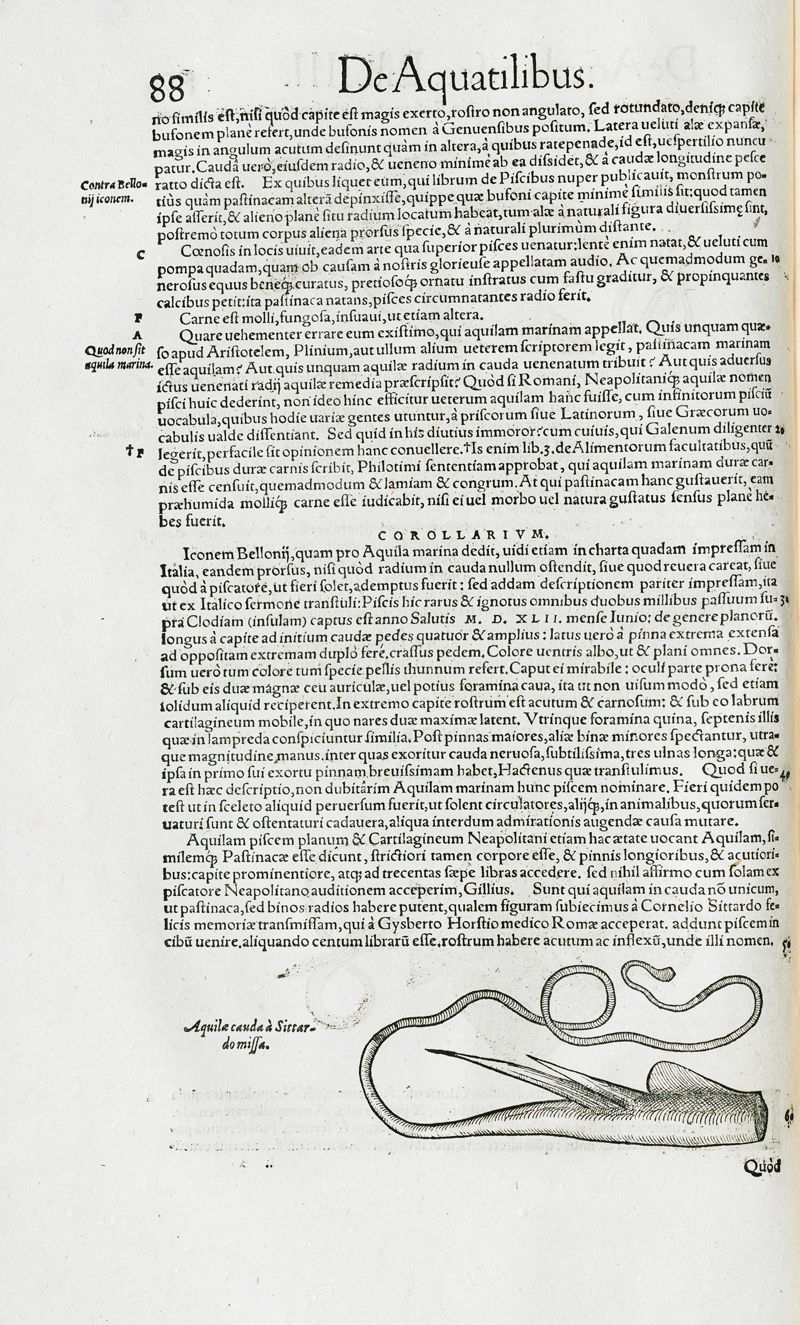 88 De Aquatilibus.
no similis est, nisi quòd capite est magis exerto, rostro non angulato, sed rotundato, deniq; capite
bufonem planè refert, unde bufonis nomen à Genuensibus positum. Latera ueluti alæ expansæ,
magis in angulum acutum desinunt quàm in altera, à quibus ratepenade, id est, uespertilio nuncu
patur. Cauda uerò, eiusdem radio, & ueneno minimè ab ea dissidet, & à caudæ longitudine pesce
ratto dicta est. Ex quibus liquet eum, qui librum de Piscibus nuper publicauit, monstrum po-
Contra Bello-
nij iconem.
tiùs quàm pastinacam alterã depinxisse, quippe quæ bufoni capite minimè similis sit: quod tamen
ipse asserit, & alieno planè situ radium locatum habeat, tum alæ à naturali figura diuersissimę sint,
postremò totum corpus aliena prorsus specie, & à naturali plurimum distante.
C
Cœnosis in locis uiuit, eadem arte qua superior pisces uenatur: lentè enim natat, & ueluti cum
pompa quadam, quam ob causam à nostris glorieuse appellatam audio. Ac quemadmodum ge- 10
nerosus equus beneq; curatus, pretiosoq; ornatu instratus cum fastu graditur, & propinquantes
calcibus petit: ita pastinaca natans, pisces circumnatantes radio ferit.
F
Carne est molli, fungosa, insuaui, ut etiam altera.
A
Quare uehementer errare eum existimo, qui aquilam marinam appellat. Quis unquam quæ-
Quod non sit
aquila marina.
so apud Aristotelem, Plinium, aut ullum alium ueterem scriptorem legit, pastinacam marinam
esse aquilam? Aut quis unquam aquilæ radium in cauda uenenatum tribuit? Aut quis aduersus
ictus uenenati radij aquilæ remedia præscripsit? Quòd si Romani, Neapolitaniq; aquilæ nomen
pisci huic dederint, non ideo hinc efficitur ueterum aquilam hanc fuisse, cum infinitorum pisciũ
uocabula, quibus hodie uariæ gentes utuntur, à priscorum siue Latinorum, siue Græcorum uo-
cabulis ualde dissentiant. Sed quid in his diutius immoror? cum cuiuis, qui Galenum diligenter 20
† F
legerit, perfacile sit opinionem hanc conuellere. †Is enim lib. 3. de Alimentorum facultatibus, quũ
de piscibus duræ carnis scribit, Philotimi sententiam approbat, qui aquilam marinam duræ car-
nis esse censuit, quemadmodum & lamiam & congrum. At qui pastinacam hanc gustauerit, eam
præhumida molliq; carne esse iudicabit, nisi ei uel morbo uel natura gustatus sensus planè he-
bes fuerit.
COROLLARIVM.
Iconem Bellonij, quam pro Aquila marina dedit, uidi etiam in charta quadam impressam in
Italia, eandem prorsus, nisi quòd radium in cauda nullum ostendit, siue quod reuera careat, siue
quòd à piscatore, ut fieri solet, ademptus fuerit: sed addam descriptionem pariter impressam, ita
ut ex Italico sermone transtuli: Piscis hic rarus & ignotus omnibus duobus millibus passuum su- 30
pra Clodiam (insulam) captus est anno Salutis M. D. XLII. mense Iunio: de genere planorũ.
longus à capite ad initium caudæ pedes quatuor & amplius: latus uerò à pinna extrema extensa
ad oppositam extremam duplò ferè. crassus pedem. Colore uentris albo, ut & plani omnes. Dor-
sum uerò tum colore tum specie pellis thunnum refert. Caput ei mirabile: oculi parte prona ferè:
& sub eis duæ magnæ ceu auriculæ, uel potius foramina caua, ita ut non uisum modò, sed etiam
solidum aliquid reciperent. In extremo capite rostrum est acutum & carnosum: & sub eo labrum
cartilagineum mobile, in quo nares duæ maximæ latent. Vtrinque foramina quina, septenis illis
quæ in lampreda conspiciuntur similia. Post pinnas maiores, aliæ binæ minores spectantur, utra-
que magnitudine manus. inter quas exoritur cauda neruosa, subtilissima, tres ulnas longa: quæ &
ipsa in primo sui exortu pinnam breuissimam habet. Hactenus quæ transtulimus. Quod si ue- 40
ra est hæc descriptio, non dubitârim Aquilam marinam hunc piscem nominare. Fieri quidem po
test ut in sceleto aliquid peruersum fuerit, ut solent circulatores, alijq;, in animalibus, quorum ser-
uaturi sunt & ostentaturi cadauera, aliqua interdum admirationis augendæ causa mutare.
Aquilam piscem planum & Cartilagineum Neapolitani etiam hac ætate uocant Aquilam, si-
milemq; Pastinacæ esse dicunt, strictiori tamen corpore esse, & pinnis longioribus, & acutiori-
bus: capite prominentiore, atq; ad trecentas sæpè libras accedere. sed nihil affirmo cum solam ex
piscatore Neapolitano auditionem acceperim, Gillius. Sunt qui aquilam in cauda nõ unicum,
ut pastinaca, sed binos radios habere putent, qualem figuram subiecimus à Cornelio Sittardo fe-
licis memoriæ transmissam, qui à Gysberto Horstio medico Romæ acceperat. addunt piscem in
cibũ uenire. aliquando centum librarũ esse. rostrum habere acutum ac inflexũ, unde illi nomen. 50
Aquilæ cauda à Sittar-
do missa.
60
Quòd